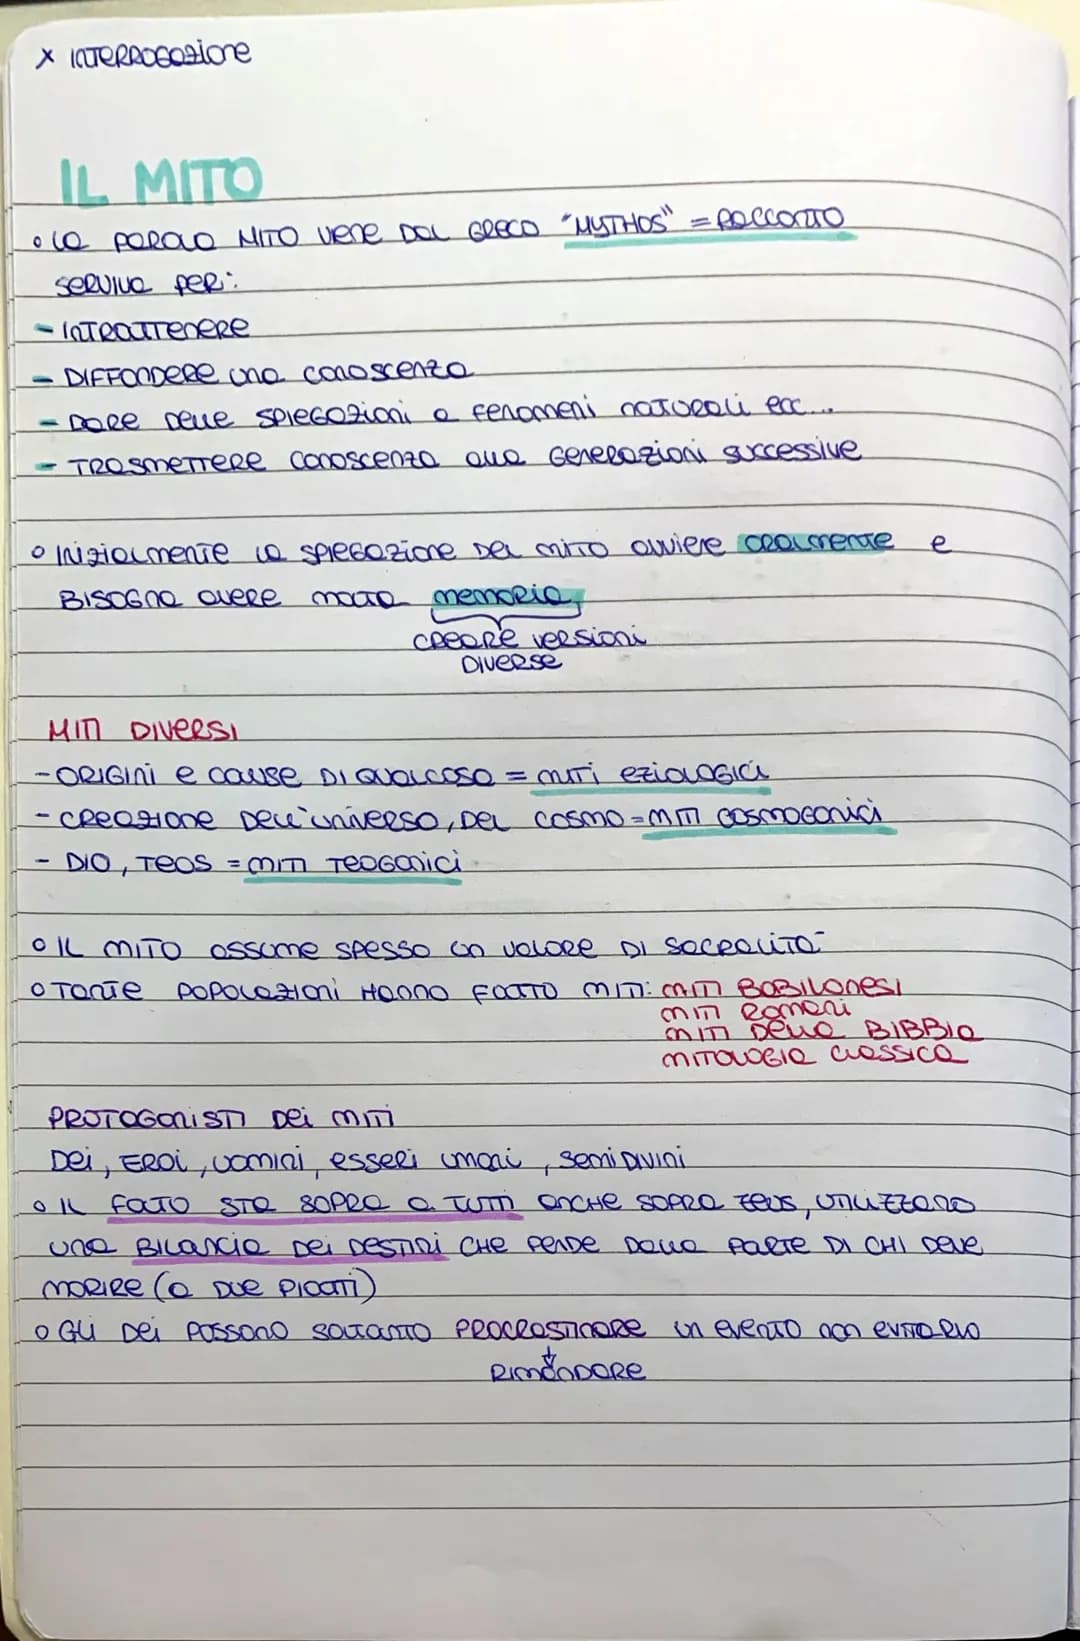 x INTERROGAZIONE
IL MITO
• LA PAROLA MITO VIENE DAL GRECO "MYTHOS" = RACCONTO
SERVIVA PER:
- INTRATTENERE
- DIFFONDERE UNA CONOSCENZA
- DARE DELLE SPIEGAZIONI A FENOMENI NATURALI ECC...
- TRASMETTERE CONOSCENZA ALLA GENERAZIONI SUCCESSIVE
• INIZIALMENTE LA SPIEGAZIONE DEL MITO AVVIENE ORALMENTE E
BISOGNA AVERE MOLTA MEMORIA,
CREARE VERSIONI
DIVERSE
MITI DIVERSI
- ORIGINI E CAUSE DI QUALCOSA = MITI EZIOLOGICI
- CREAZIONE DELL'UNIVERSO, DEL COSMO = MITI COSMOGONICI
- DIO, TEOS = MITI TEOGONICI
• IL MITO ASSUME SPESSO UN VALORE DI SACRALITÀ
• TANTE POPOLAZIONI HANNO FATTO MITI: MITI BABILONESI
MITI ROMANI
MITI DELLA BIBBIA
MITOLOGIA CLASSICA
PROTAGONISTI DEI MITI
DEI, EROI, UOMINI, ESSERI UMANI, SEMIDIVINI
• IL FATO STA SOPRA A TUTTI ANCHE SOPRA ZEUS, UTILIZZANO
UNA BILANCIA DEI DESTINI CHE PENDE DALLA PARTE DI CHI DEVE
MORIRE (A DUE PIATTI)
• GLI DEI POSSONO SOLTANTO PROCRASTINARE UN EVENTO NON EVITARLO
RIMANDARE